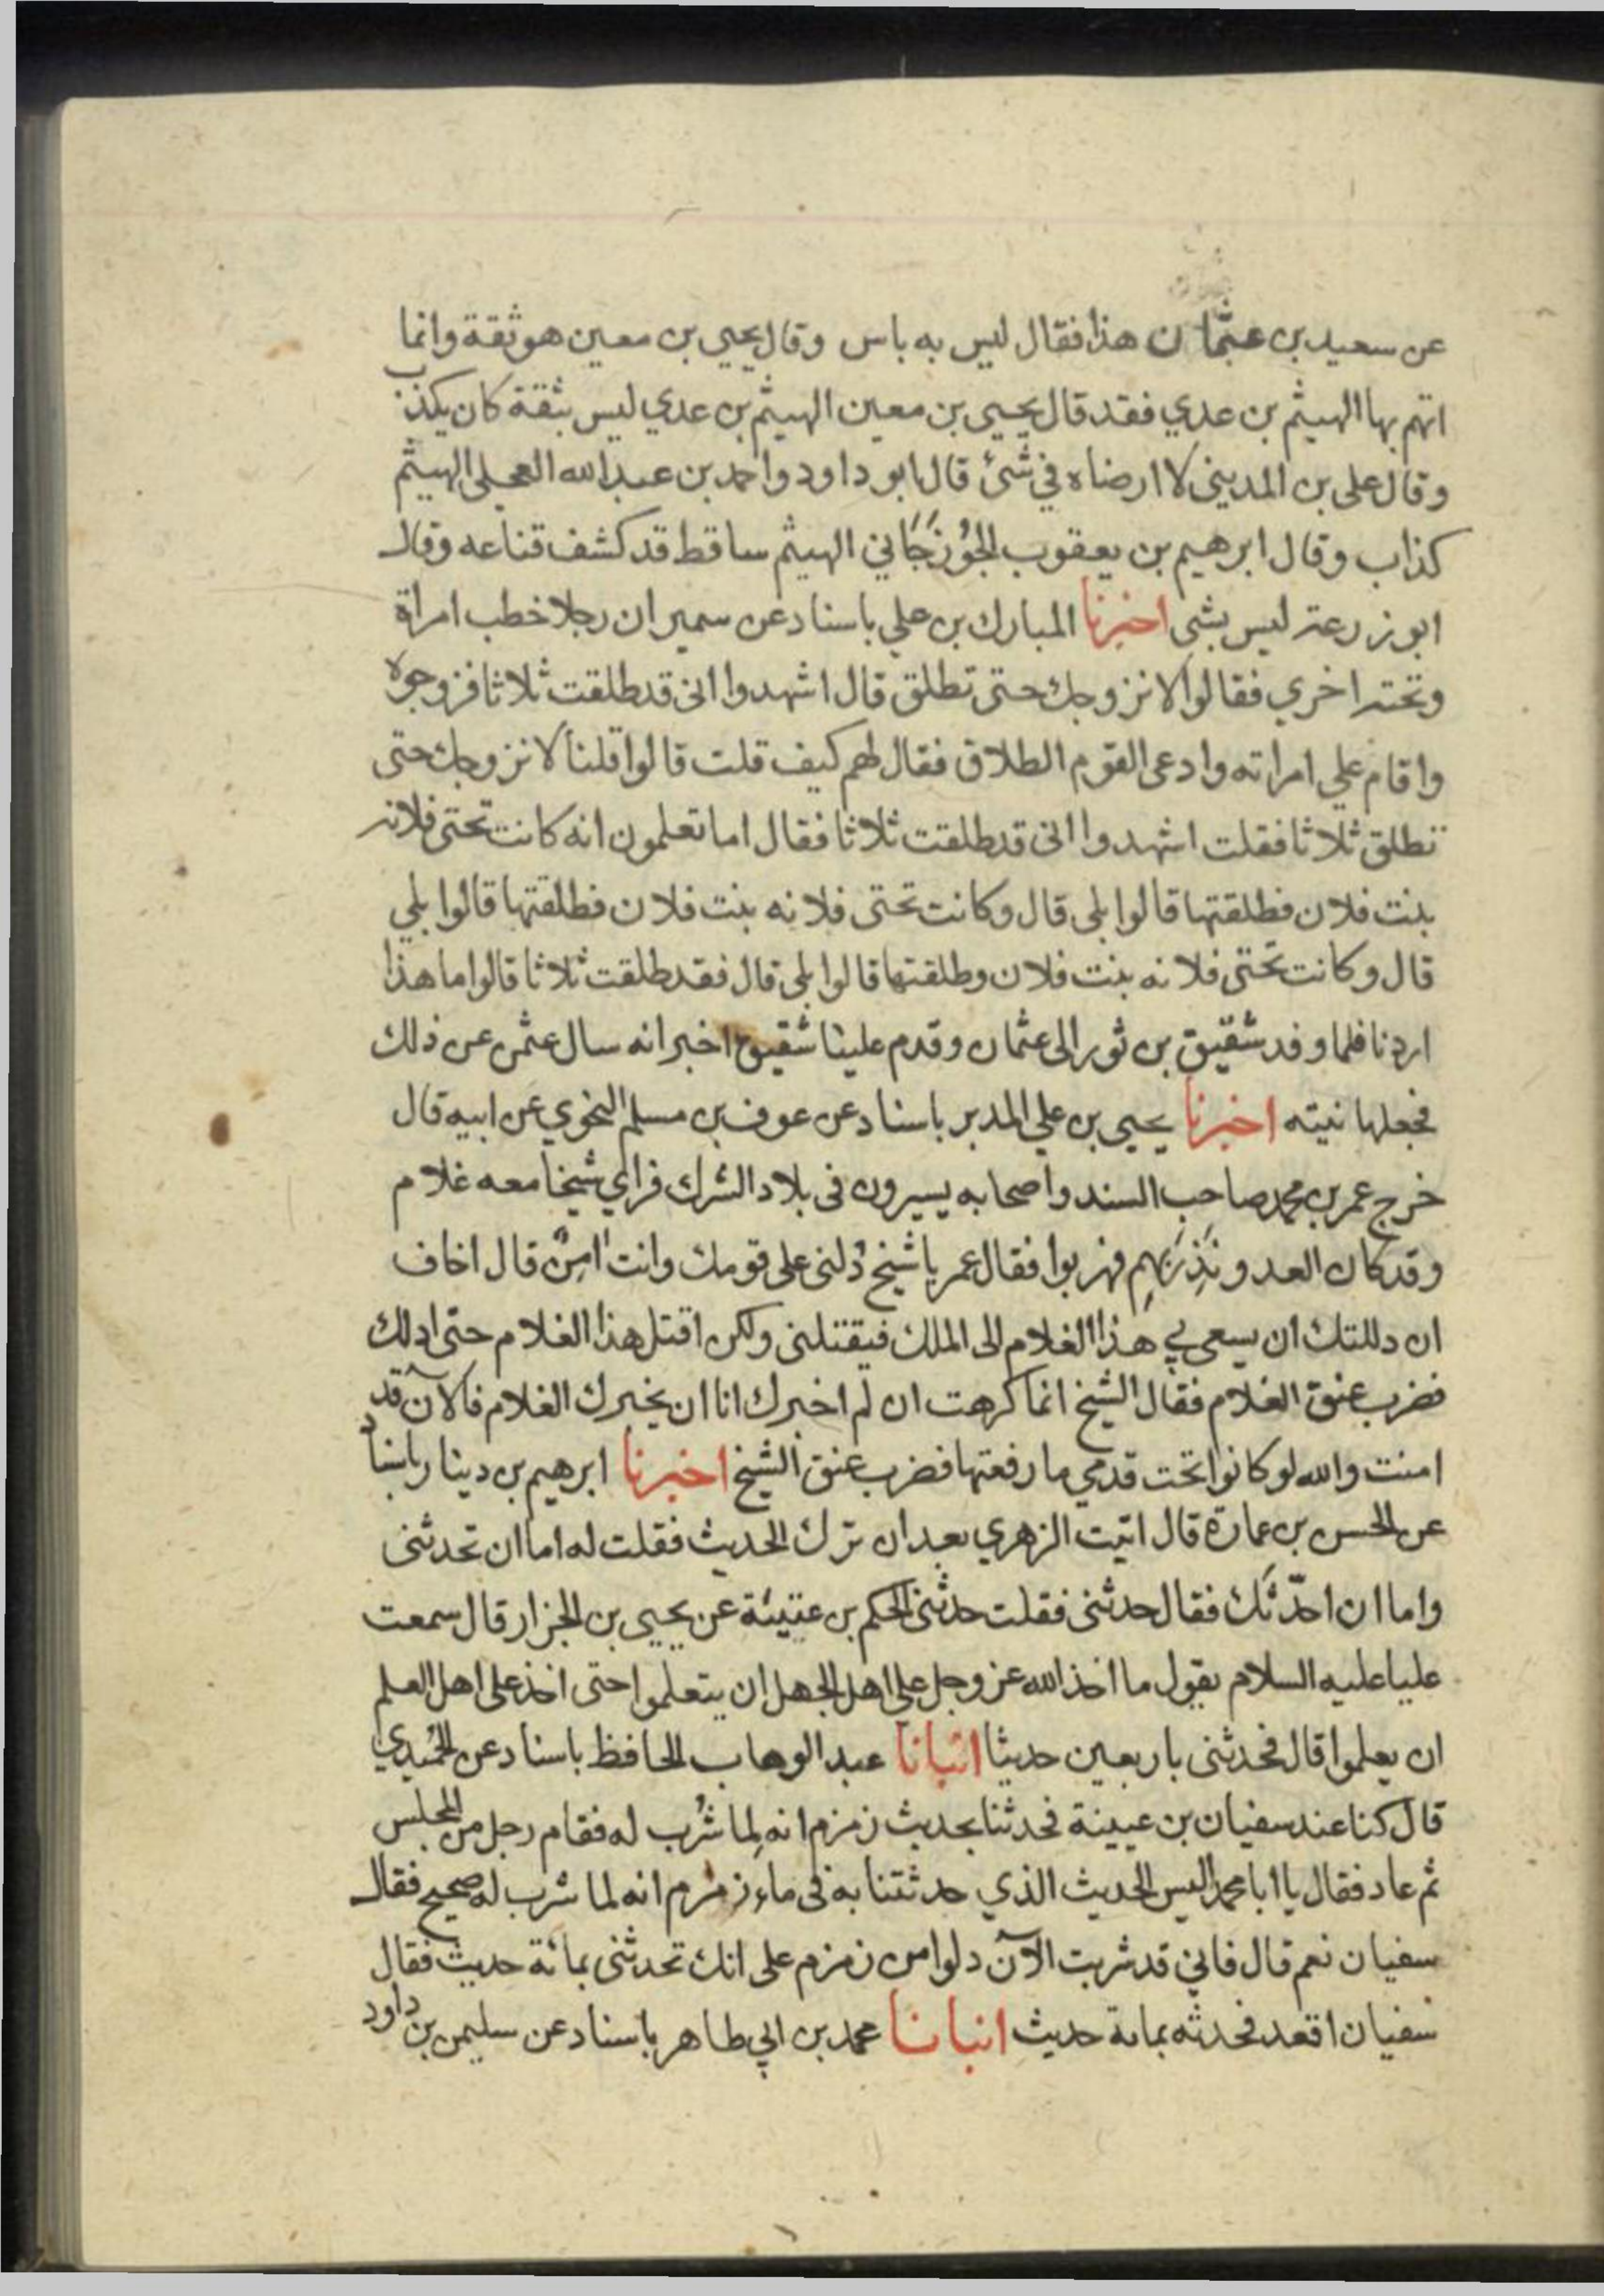 عن سعيد بن عثمان هذا فقال ليس به باس وقال يحيى بن معين هو ثقة وانما
اتهم بها الهيثم بن عدي فقد قال يحيى بن معين الهيثم بن عدي ليس بثقة كان يكذب
وقال على بن المديني لا ارضاه في شئ قال ابو داود واحمد بن عبد الله العجلى الهيثم
كذاب وقال ابرهيم بن يعقوب الجُوْزَجَاني الهيثم ساقط قد كشف قناعه وقال
ابو زرعة ليس بشى اخبرنا المبارك بن علي باسناد عن سمير ان رجلا خطب امراة
وتحته اخري فقالوا لا نزوجك حتى تطلق قال اشهدوا انى قد طلقت ثلاثا فزوجوه
واقام علي امراته وادعى القوم الطلاق فقال لهم كيف قلت قالوا قلنا لا نزوجك حتى
تطلق ثلاثا فقلت اشهدوا انى قد طلقت ثلاثا فقال اما تعلمون انه كانت تحتى فلانه
بنت فلان فطلقتها قالوا بلى قال وكانت تحتى فلانه بنت فلان فطلقتها قالوا بلي
قال وكانت تحتى فلانه بنت فلان وطلقتها قالوا بلى قال فقد طلقت ثلاثا قالوا ما هذا
اردنا فلما وفد شقيق بن ثور الى عثمان وقدم علينا شقيق اخبر انه سال عثمن عن ذلك
فجعلها نيته اخبرنا يحيى بن علي المدبر باسناد عن عوف بن مسلم النحوي عن ابيه قال
خرج عمر بن محمد صاحب السند واصحابه يسيرون فى بلاد الشرك فراي شيخا معه غلام
وقد كان العدو نَذِرَ بهِم فهربوا فقال عمر يا شيخ دُلنى على قومك وانت امِنٌ قال اخاف
ان دللتك ان يسعى بي هذا الغلام الى الملك فيقتلنى ولكن اقتل هذا الغلام حتى ادلك
فضرب عنق الغلام فقال الشيخ انما كرهت ان لم اخبرك انا ان يخبرك الغلام فالآن قد
امنت والله لو كانوا تحت قدمي ما رفعتها فضرب عنق الشيخ اخبرنا ابرهيم بن دينار باسناد
عن الحسن بن عمارة قال اتيت الزهري بعد ان ترك الحديث فقلت له اما ان تحدثنى
واما ان احدّثك فقال حدثنى فقلت حدثنى الحكم بن عتيبة عن يحيى بن الجزار قال سمعت
عليا عليه السلام يقول ما اخذ الله عز وجل على اهل الجهل ان يتعلموا حتى اخذ على اهل العلم
ان يعلموا قال فحدثنى باربعين حديثا انبانا عبد الوهاب الحافظ باسناد عن الحُميدي
قال كنا عند سفيان بن عيينة فحدثنا بحديث زمزم انه لِما شُرب له فقام رجل من المجلس
ثم عاد فقال يا ابا محمد اليس الحديث الذي حدثتنا به فى ماء زمزم انه لما شرب له صحيح فقال
سفيان نعم قال فاني قد شربت الآن دلوا من زمزم على انك تحدثنى بمائة حديث فقال
سفيان اقعد فحدثه بماية حديث انبانا محمد بن ابي طاهر باسناد عن سليمن بن داود